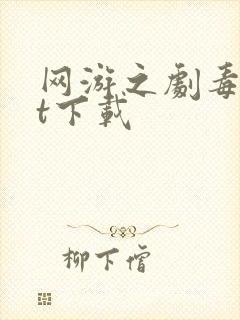 网游之劇毒
t下载
柳下僧